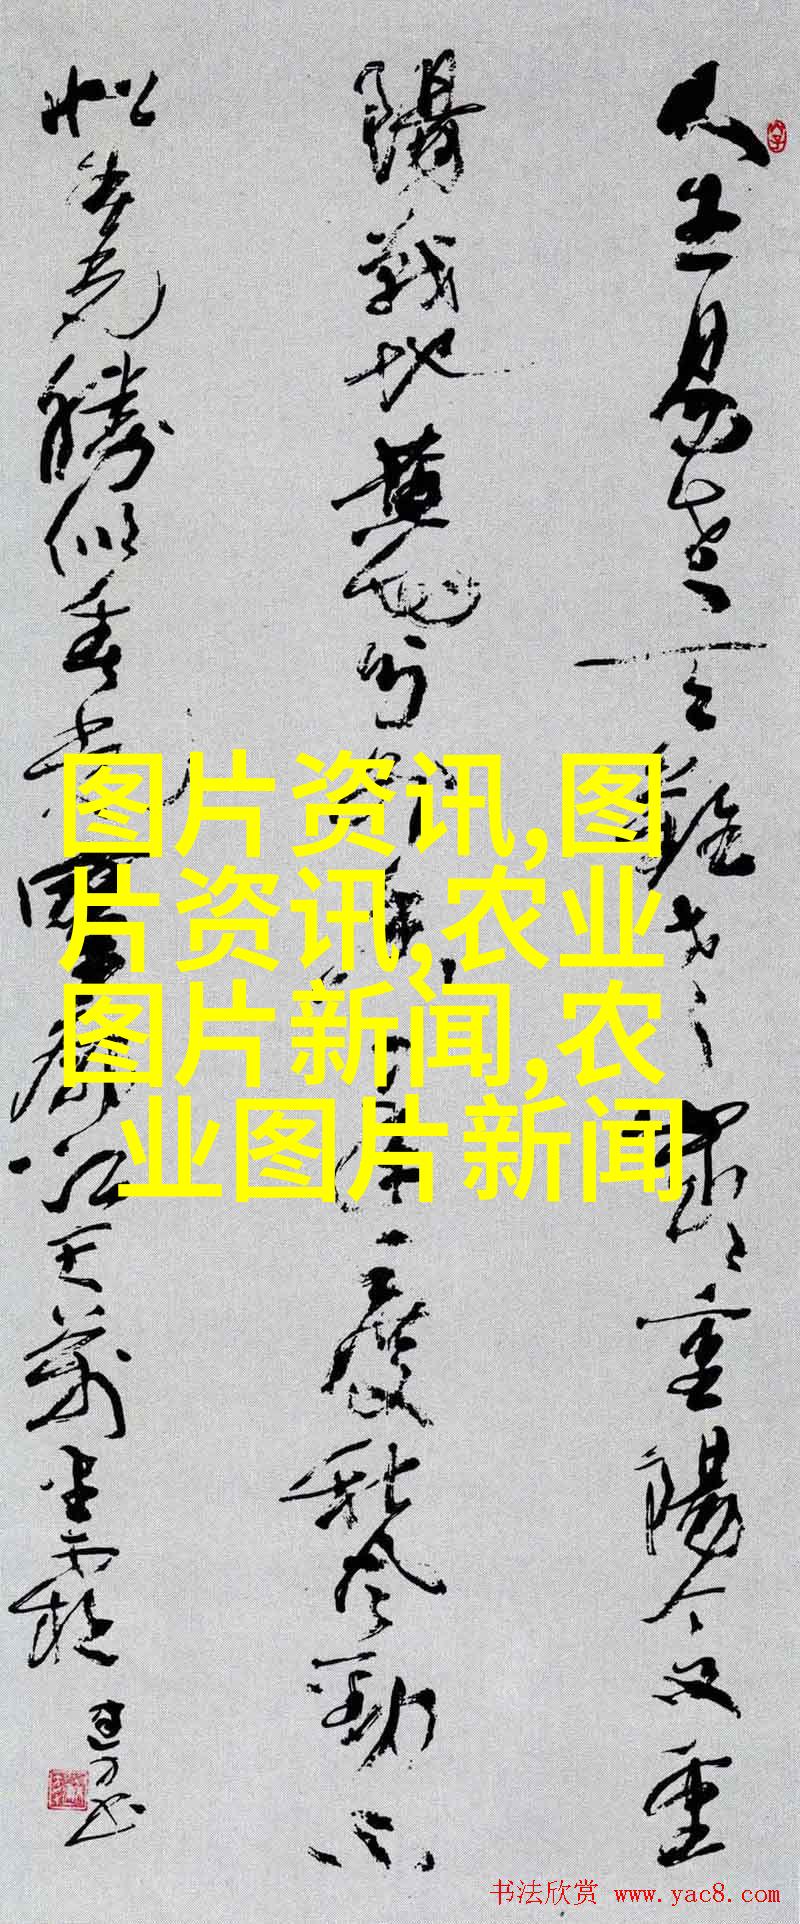 人生易老天難老歲々重陽今又重
陽戰地黃花分外香一年一度秋風勁不
似春光勝似春光寥廓江天萬里霜
图片资讯,图
片资讯,农业
图片新闻,农
业图片新闻
书法欣赏 www.yac8.com